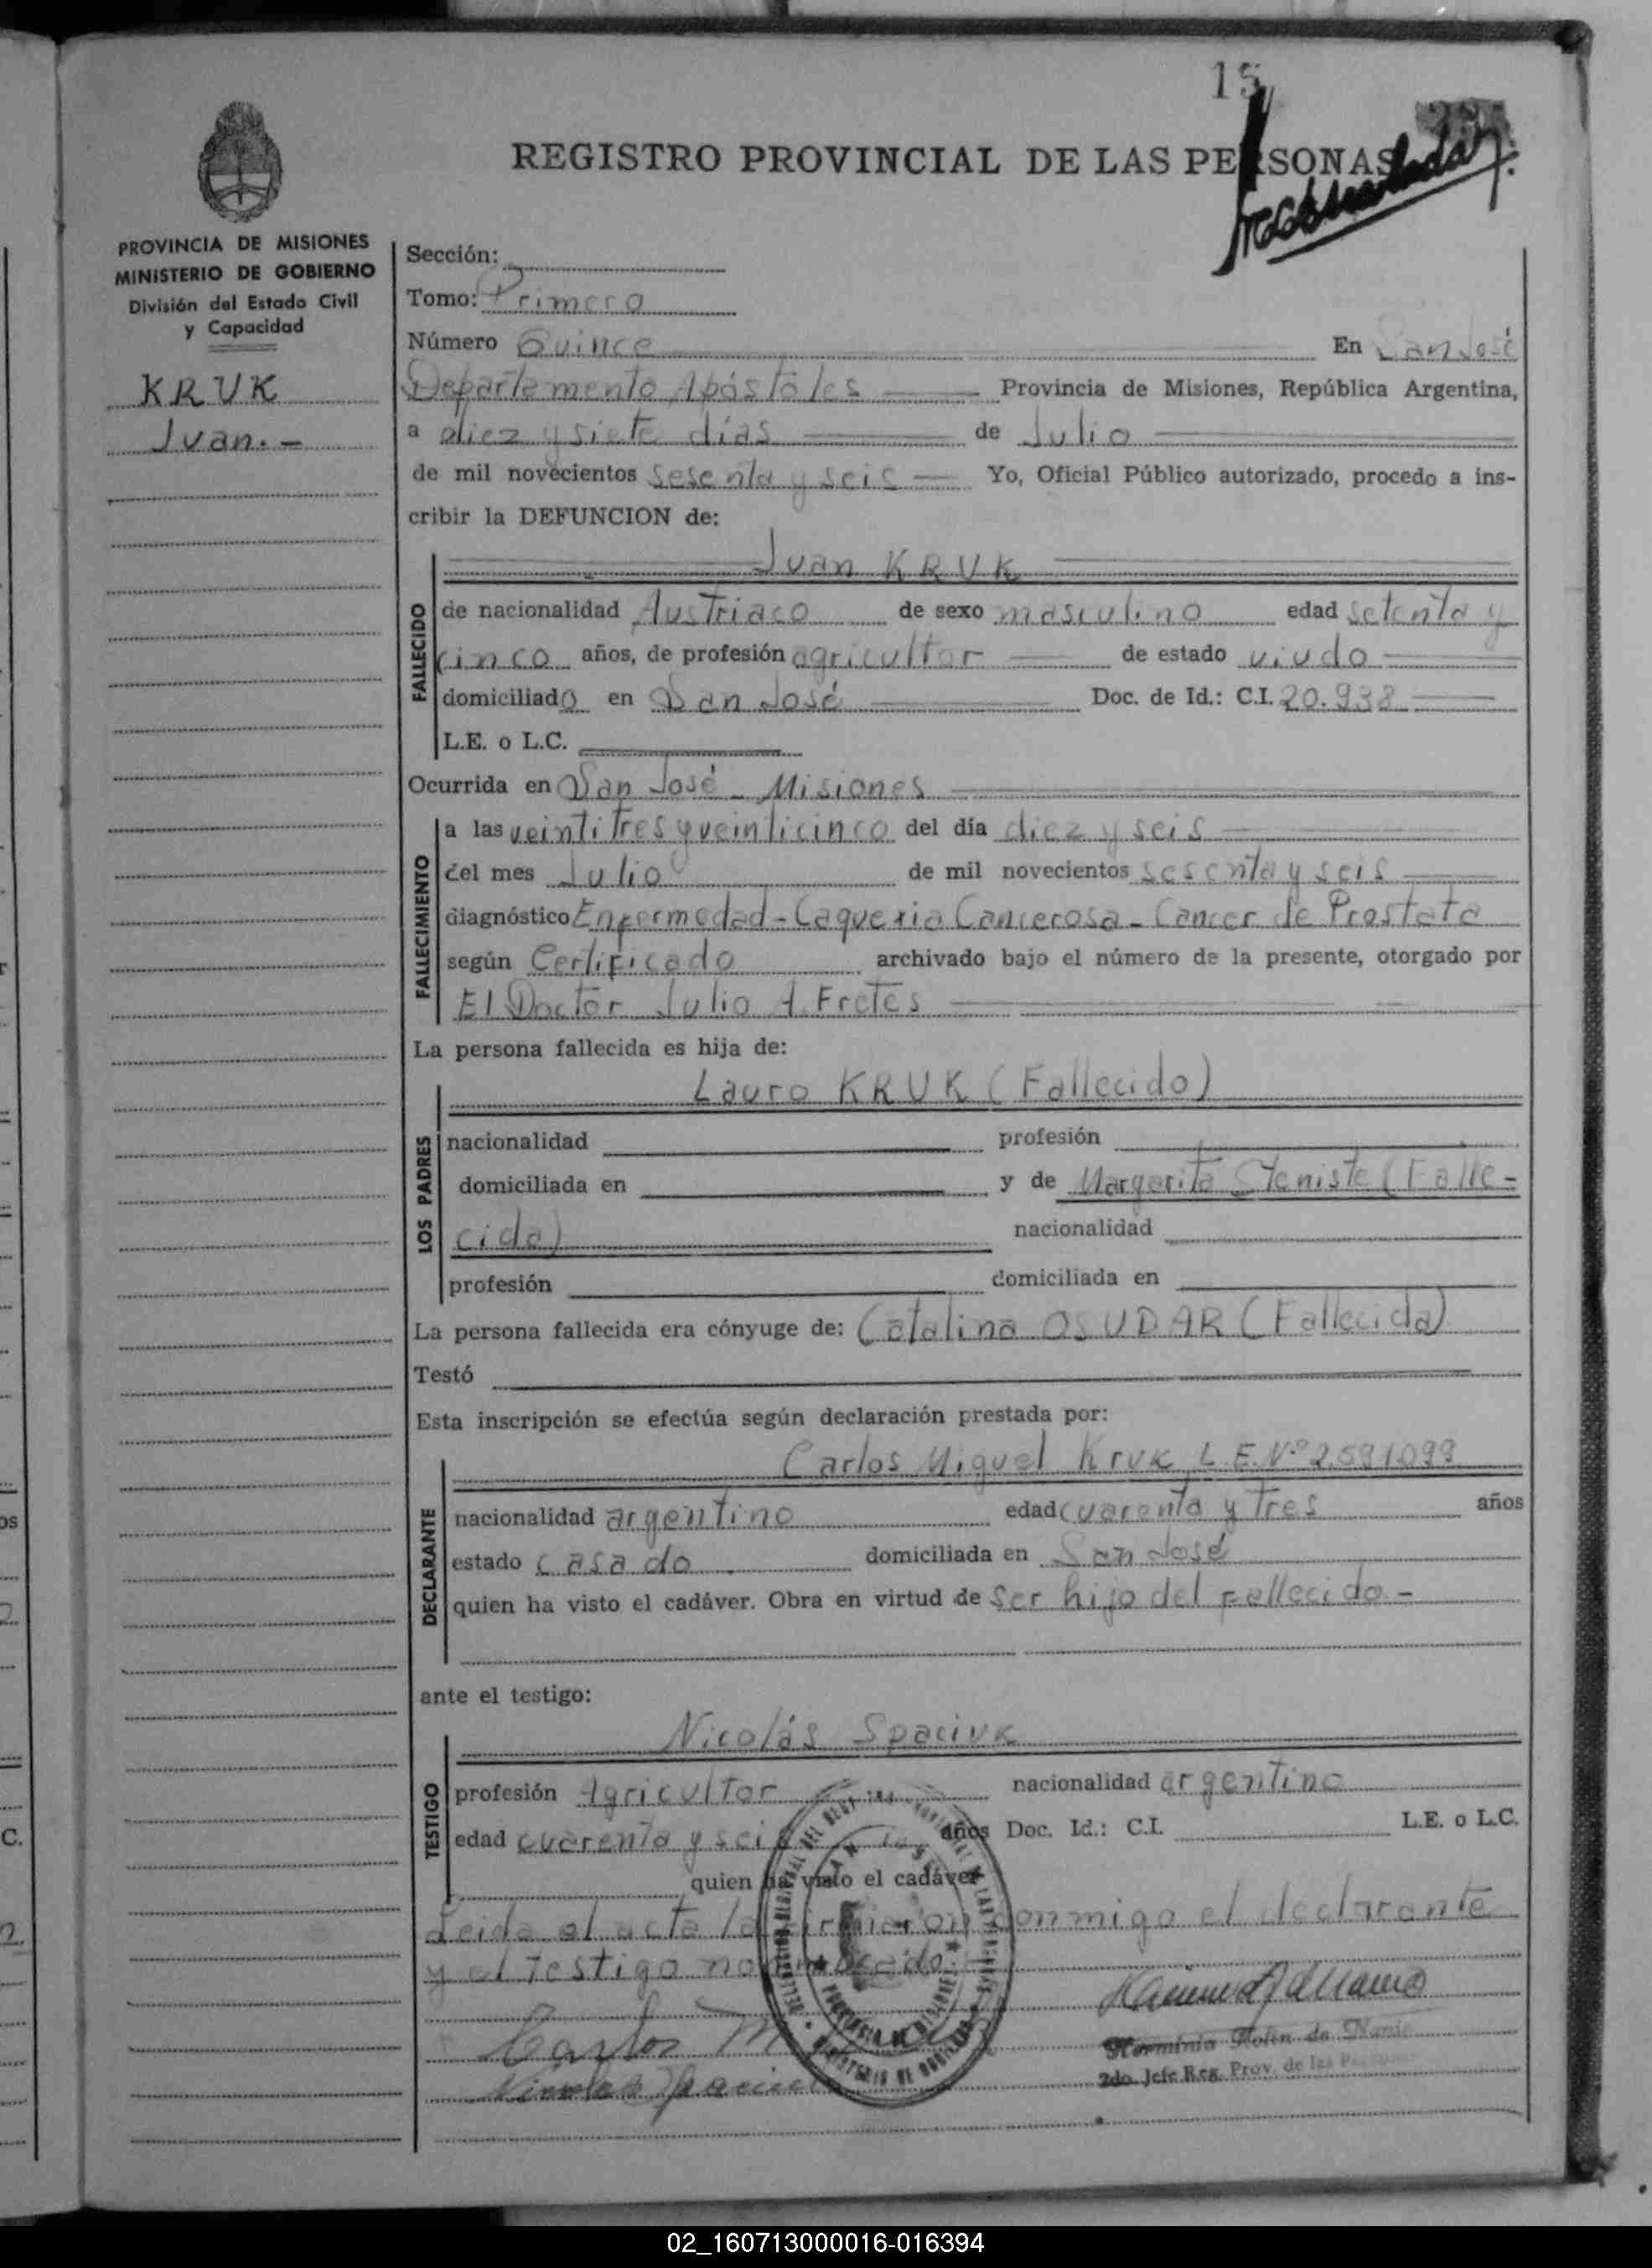 15
REGISTRO PROVINCIAL DE LAS PERSONAS
PROVINCIA DE MISIONES
MINISTERIO DE GOBIERNO
División del Estado Civil
y Capacidad
KRUK
Juan.-
Sección:
Tomo: Primero
Número Quince En San José
Departamento Apóstoles Provincia de Misiones, República Argentina,
a diez y siete días de Julio
de mil novecientos sesenta y seis Yo, Oficial Público autorizado, procedo a ins-
cribir la DEFUNCION de:
Juan KRUK
FALLECIDO
de nacionalidad Austriaco de sexo masculino edad setenta y
cinco años, de profesión agricultor de estado viudo
domiciliado en San José Doc. de Id.: C.I. 20.938
L.E. o L.C.
Ocurrida en San José - Misiones
FALLECIMIENTO
a las veintitres y veinticinco del día diez y seis
del mes Julio de mil novecientos sesenta y seis
diagnóstico Enfermedad - Caquexia Cancerosa - Cancer de Prostata
según Certificado archivado bajo el número de la presente, otorgado por
El Doctor Julio A. Fretes
La persona fallecida es hija de:
Lauro KRUK (Fallecido)
LOS PADRES
nacionalidad profesión
domiciliada en y de Margarita Steniste (Falle-
cida) nacionalidad
profesión domiciliada en
La persona fallecida era cónyuge de: Catalina OSUDAR (Fallecida)
Testó
Esta inscripción se efectúa según declaración prestada por:
Carlos Miguel Kruk L.E.Nº 2.591.099
DECLARANTE
nacionalidad argentino edad cuarenta y tres años
estado casado domiciliada en San José
quien ha visto el cadáver. Obra en virtud de ser hijo del fallecido.-
ante el testigo:
Nicolás Spaciuk
TESTIGO
profesión Agricultor nacionalidad argentino
edad cuarenta y seis años Doc. Id.: C.I. L.E. o L.C.
quien ha visto el cadáver
Leida el acta la firmaron conmigo el declarante
y el testigo nombrado.
Carlos M
Herminia Holin de
2do. Jefe Reg. Prov. de las
02_160713000016-016394